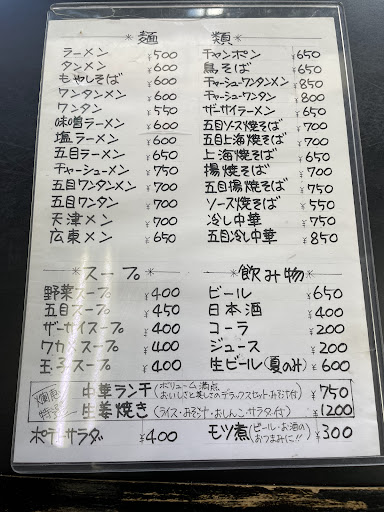 ＊麺　類＊
ラーメン ¥500
タンメン ¥600
もやしそば ¥600
ワンタンメン ¥600
ワンタン ¥550
味噌ラーメン ¥600
塩ラーメン ¥600
五目ラーメン ¥650
チャーシューメン ¥750
五目ワンタンメン ¥700
五目ワンタン ¥700
天津メン ¥700
広東メン ¥650
チャンポン ¥650
鳥そば ¥650
チャーシューワンタンメン ¥850
チャーシューワンタン ¥800
ザーサイラーメン ¥650
五目ソース焼そば ¥700
五目上海焼そば ¥700
上海焼そば ¥650
揚焼そば ¥700
五目揚焼そば ¥750
ソース焼そば ¥650
冷し中華 ¥750
五目冷し中華 ¥850
＊スープ＊
野菜スープ ¥400
五目スープ ¥450
ザーサイスープ ¥400
ワカメスープ ¥400
玉子スープ ¥400
＊飲み物＊
ビール ¥650
日本酒 ¥400
コーラ ¥200
ジュース ¥200
生ビール(夏のみ) ¥600
中華ランチ(ボリューム満点 おいしさと美しさのデラックスセット・みそ汁付) ¥750
生姜焼き(ライス・みそ汁・おしんこ・サラダ付) ¥1200
ポテトサラダ ¥400
モツ煮(ビール・お酒のおつまみに!!) ¥300